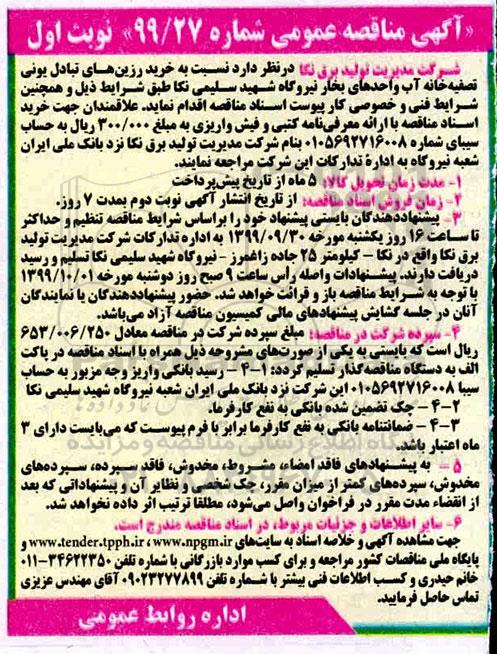 «آگهی مناقصه عمومی شماره ۹۹/۲۷» نوبت اول
شرکت مدیریت تولید برق نکا درنظر دارد نسبت به خرید رزین‌های تبادل یونی
تصفیه‌خانه آب واحدهای بخار نیروگاه شهید سلیمی نکا طبق شرایط ذیل و همچنین
شرایط فنی و خصوصی کار پیوست اسناد مناقصه اقدام نماید. علاقمندان جهت خرید
اسناد مناقصه با ارائه معرفی‌نامه کتبی و فیش واریزی به مبلغ ۳۰۰/۰۰۰ ریال به حساب
سیبای شماره ۰۱۰۵۶۹۲۷۱۶۰۰۸ بنام شرکت مدیریت تولید برق نکا نزد بانک ملی ایران
شعبه نیروگاه به اداره تدارکات این شرکت مراجعه نمایند.
۱- مدت زمان تحویل کالا: ۵ ماه از تاریخ پیش‌پرداخت
۲- زمان فروش اسناد مناقصه: از تاریخ انتشار آگهی نوبت دوم بمدت ۷ روز.
۳- پیشنهاددهندگان بایستی پیشنهاد خود را براساس شرایط مناقصه تنظیم و حداکثر
تا ساعت ۱۶ روز یکشنبه مورخه ۱۳۹۹/۰۹/۳۰ به اداره تدارکات شرکت مدیریت تولید
برق نکا واقع در نکا – کیلومتر ۲۵ جاده زاغمرز - نیروگاه شهید سلیمی نکا تسلیم و رسید
دریافت دارند. پیشنهادات واصله رأس ساعت ۹ صبح روز دوشنبه مورخه ۱۳۹۹/۱۰/۰۱
با توجه به شرایط مناقصه باز و قرائت خواهد شد. حضور پیشنهاددهندگان یا نمایندگان
آنان در جلسه گشایش پیشنهادهای مالی کمیسیون مناقصه آزاد می‌باشد.
۴- سپرده شرکت در مناقصه: مبلغ سپرده شرکت در مناقصه معادل ۶۵۳/۰۰۶/۲۵۰
ریال است که بایستی به یکی از صورت‌های مشروحه ذیل همراه با اسناد مناقصه در پاکت
الف به دستگاه مناقصه‌گذار تسلیم گردد: ۱-۴ - رسید بانکی واریز وجه مزبور به حساب
سیبا ۰۱۰۵۶۹۲۷۱۶۰۰۸ این شرکت نزد بانک ملی ایران شعبه نیروگاه شهید سلیمی نکا
۲-۴ - چک تضمین شده بانکی به نفع کارفرما.
۳-۴ - ضمانتنامه بانکی به نفع کارفرما برابر با فرم پیوست که می‌بایست دارای ۳
ماه اعتبار باشد.
۵ – به پیشنهادهای فاقد امضاء، مشروط، مخدوش، فاقد سپرده، سپرده‌های
مخدوش، سپرده‌های کمتر از میزان مقرر، چک شخصی و نظایر آن و پیشنهاداتی که بعد
از انقضاء مدت مقرر در فراخوان واصل می‌شود، مطلقا ترتیب اثر داده نخواهد شد.
۶- سایر اطلاعات و جزئیات مربوط، در اسناد مناقصه مندرج است.
جهت مشاهده آگهی و خلاصه اسناد به سایت‌های www.tender.tpph.ir ،www.npgm.ir و
پایگاه ملی مناقصات کشور مراجعه و برای کسب موارد بازرگانی با شماره تلفن ۳۴۶۲۲۳۵۰-۰۱۱
خانم حیدری و کسب اطلاعات فنی بیشتر با شماره تلفن ۰۹۰۲۳۲۷۷۸۹۹ آقای مهندس عزیزی
تماس حاصل فرمایید.
اداره روابط عمومی